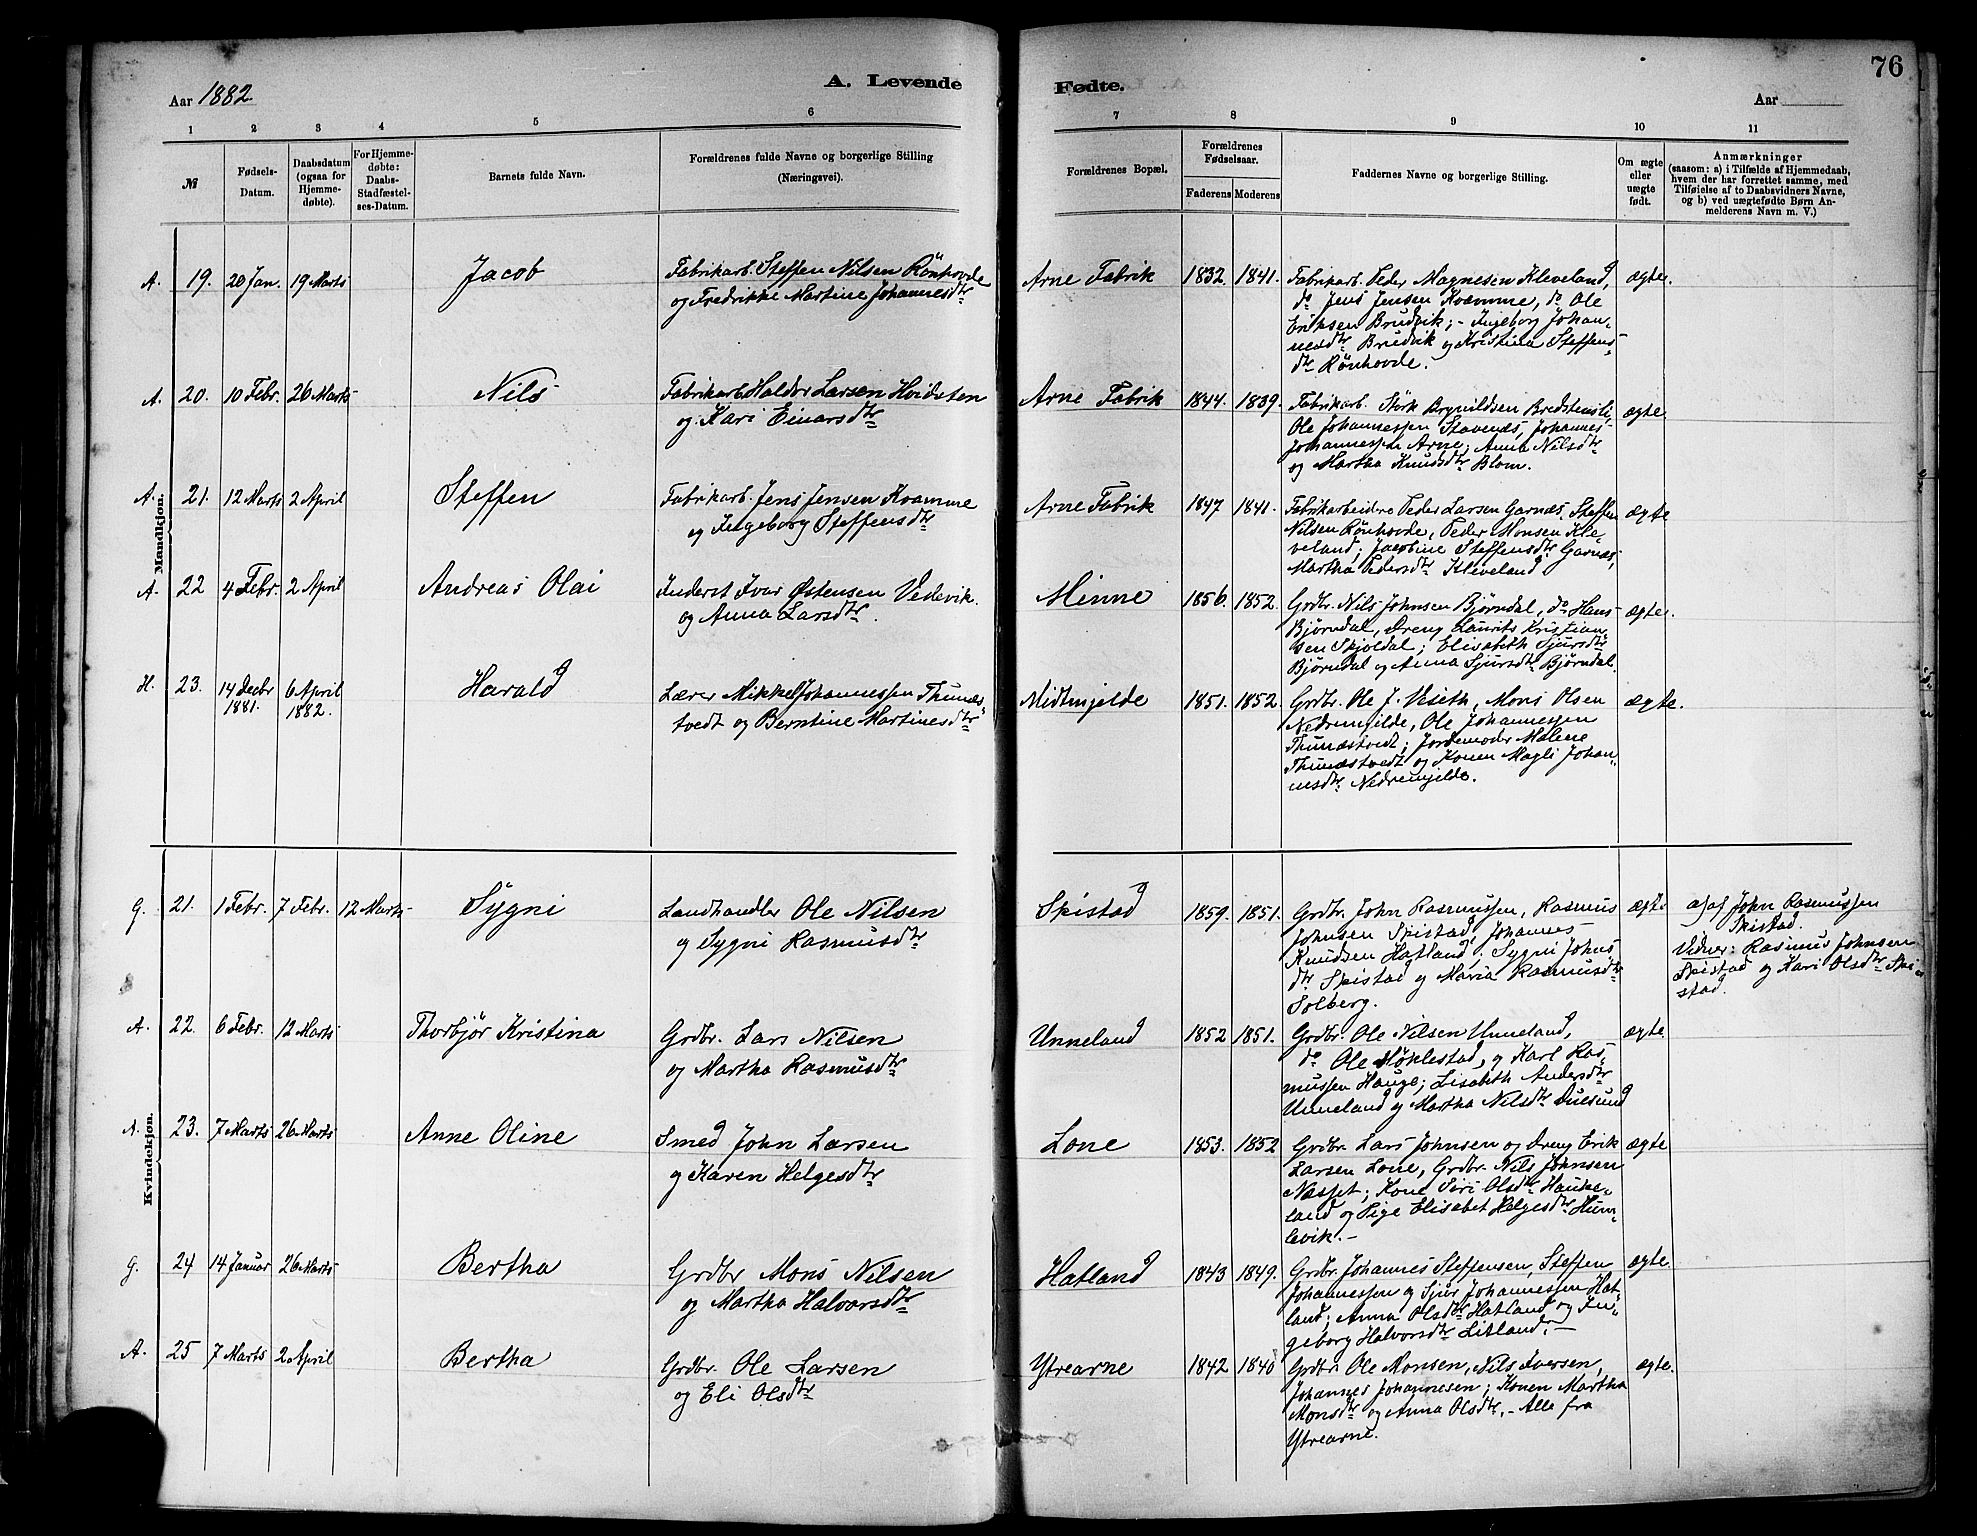 76
A. Levende Fødte.
Aar 1882.
Aar
1 2 3 4 5 6 7 8 9 10 11
№
Fødsels-Datum.
Daabsdatum (ogsaa for Hjemmedøbte).
For Hjemmedøbte: Daabs-Stadfæstelses-Datum.
Barnets fulde Navn.
Forældrenes fulde Navne og borgerlige Stilling (Næringsvei).
Forældrenes Bopæl.
Forældrenes Fødselsaar.
Faderens Moderens
Faddernes Navne og borgerlige Stilling.
Om ægte eller uægte født.
Anmærkninger
(saasom: a) i Tilfælde af Hjemmedaab, hvem der har forrettet samme, med Tilføielse af to Daabsvidners Navne, og b) ved uægtefødte Børn Anmelderens Navn m. V.)
Mandkjøn.
A. 19. 20 Jan. 19 Marts Jacob
Fabrikarb. Steffen Nilsen Rönhovde
og Fredrikke Martine Johannesdtr
Arne Fabrik 1832. 1841.
Fabrikarb. Peder Magnesen Kleveland,
do Jens Jensen Kvamme, do Ole
Eriksen Brudvik; - Ingeborg Johan-
nesdtr Brudvik og Kristina Steffens-
dtr Rönhovde.
ægte.
A. 20. 10 Febr. 26 Marts Nils
Fabrikarb. Haldor Larsen Hvidsten
og Kari Einarsdtr
Arne Fabrik 1844. 1839.
Fabrikarb. Störk Brynildsen Bredstensli,
Ole Johannessen Stavenæs, Johannes
Johannessen Arne; Anna Nilsdtr
og Martha Knudsdtr Blom.
ægte
A. 21. 12 Marts 2 April Steffen
Fabrikarb. Jens Jensen Kvamme
og Ingeborg Steffensdtr
Arne Fabrik 1847 1841.
Fabrikarbeidere Peder Larsen Garnæs, Steffen
Nilsen Rönhovde, Peder Monsen Kle-
veland; Jacobine Steffensdtr Garnæs,
Martha Pedersdtr Kleveland
ægte
A. 22 4 Febr. 2 April Andreas Olai
Inderst Ivar Østensen Vedevik.
og Anna Larsdtr.
Minne 1856. 1852.
Grdbr. Nils Johnsen Bjørndal, do Hans
Bjørndal, Dreng Laurits Kristian-
sen Skjoldal; Elisabeth Sjursdtr
Bjørndal og Anna Sjursdtr Bjørndal.
ægte.
H. 23. 14 Decbr 1881. 6 April 1882. Harald
Lærer Mikkel Johannessen Thunæs-
tvedt og Berntine Martinesdtr
Midtmjelde 1851. 1852.
Grdbr. Ole J. Veseth, Mons Olsen
Nedremjelde, Ole Johannessen
Thunæstvedt; Jordemoder Malene
Thunæstvedt og Konen Magli Johan-
nesdtr Nedremjelde.
ægte.
Kvindekjøn.
G. 21. 1 Febr. 7 Febr. 12 Marts Sygni
Landhandler Ole Nilsen
og Sygni Rasmusdtr
Skistad 1859. 1851.
Grdbr. John Rasmussen, Rasmus
Johnsen Skistad, Johannes
Knudsen Hatland; Sygni Johns
dtr Skistad og Maria Rasmusdtr
Solberg.
ægte
a) af John Rasmussen
Skistad.
Vidner: Rasmus Johnsen
Skistad og Kari Olsdtr Ski-
stad.
A. 22. 6 Febr. 12 Marts Thorbjör Kristina
Grdbr. Lars Nilsen
og Martha Rasmusdtr
Unneland 1852 1851.
Grdbr. Ole Nilsen Unneland,
do Ole Höklestad, og Karl Ras-
mussen Hauge; Lisabeth Andersdtr
Unneland og Martha Nilsdtr Duesund
ægte
A. 23. 7 Marts 26 Marts Anne Oline
Smed John Larsen
og Karen Helgesdtr
Lone 1853. 1852
Grdbr. Lars Johnsen og Dreng Erik
Larsen Lone, Grdbr. Nils Johnsen
Næsset; Kone Siri Olsdtr Hauke-
land og Pige Elisabet Helgesdtr Hum-
levik. -
ægte
G. 24 14 Januar 26 Marts Bertha
Grdbr Mons Nilsen
og Martha Halvorsdtr
Hatland 1843 1849.
Grdbr. Johannes Steffensen, Steffen
Johannessen og Sjur Johannessen Hat-
land; Anna Olsdtr Hatland og In-
geborg Halvorsdtr Litland. -
ægte
A. 25 7 Marts 2 April Bertha
Grdbr. Ole Larsen
og Eli Olsdtr
Ytrearne 1842 1840
Grdbr. Ole Monsen, Nils Iversen,
Johannes Johannesen; Konen Martha
Monsdtr og Anna Olsdtr. - Alle fra
Ytrearne.
ægte.